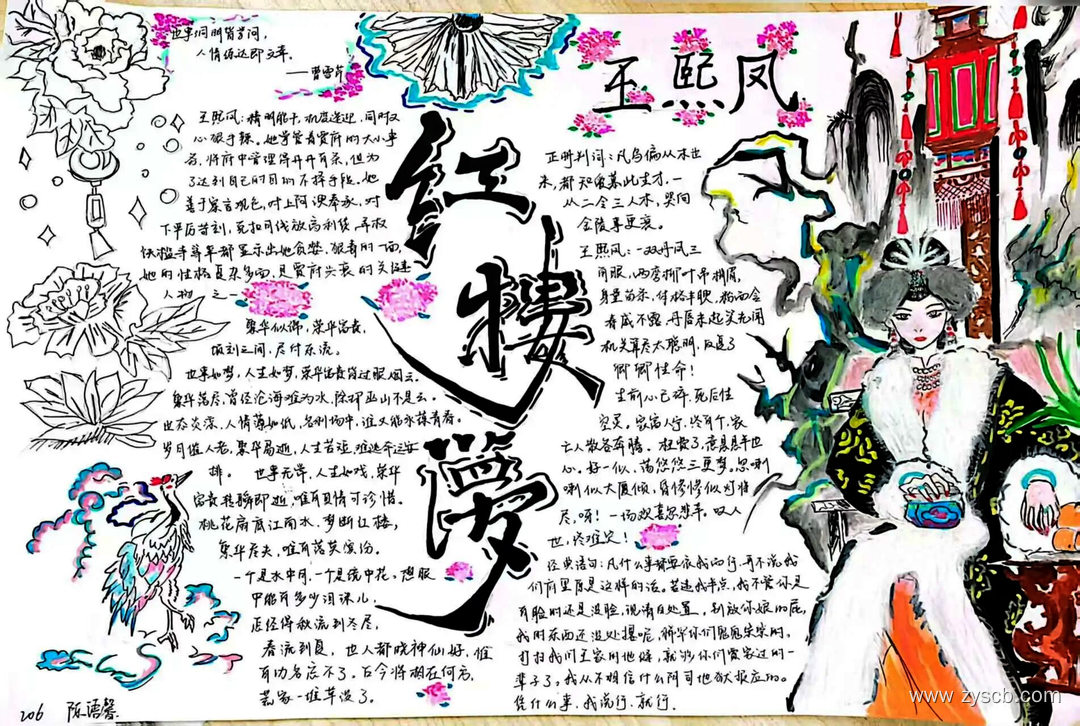 世事洞明皆学问，
人情练达即文章。
——曹雪芹
王熙凤
红楼梦
王熙凤：精明能干，机智逢迎，同时又
心狠手辣。她掌管着贾府的大小事
务，将府中管理得井井有条，但为
了达到自己的目的不择手段。她
善于察言观色，对上阿谀奉承，对
下严厉苛刻，克扣月钱放高利贷、弄权
铁槛寺等事都显示出她贪婪、狠毒的一面，
她的性格复杂多面，是贾府兴衰的关键
人物之一
繁华似锦，荣华富贵，
顷刻之间，尽付东流。
世事如梦，人生如梦，荣华富贵皆过眼烟云。
繁华落尽，曾经沧海难为水，除却巫山不是云。
世态炎凉，人情薄如纸，名利场中，谁又能永葆青春。
岁月催人老，繁华易逝，人生苦短，难逃命运安
排。 世事无常，人生如戏，荣华
富贵转瞬即逝，唯有真情可珍惜。
桃花扇底江南水，梦断红楼，
繁华落尽，唯有落英缤纷。
一个是水中月，一个是镜中花。想眼
中能有多少泪珠儿，
怎经得秋流到冬尽，
春流到夏，世人都晓神仙好，惟
有功名忘不了。古今将相在何方，
荒冢一堆草没了。
正册判词：凡鸟偏从末世
来，都知爱慕此生才，一
从二令三人木，哭向
金陵事更哀。
王熙凤：一双丹凤三
角眼，两弯柳叶吊梢眉，
身量苗条，体格风骚，粉面含
春威不露，丹唇未起笑先闻
机关算尽太聪明，反误了
卿卿性命！
生前心已碎，死后性
空灵。家富人宁，终有个，家
亡人散各奔腾。枉费了，意悬悬半世
心。好一似，荡悠悠三更梦。忽喇
喇似大厦倾，昏惨惨似灯将
尽，呀！一场欢喜忽悲辛。叹人
世，终难定！
经典语句：凡什么事都要依我而行，再不说我
们府里原是这样的话。若违我半点，我不管你是
有脸的还是没脸，现清白处置。别放你娘的屁，
我的东西还没处撂呢，
打扫我们王家的地缝，就够你们贾家过的一
辈子了。我从不相信什么阴司地狱报应的。
凭什么事，我说行，就行。
206 陈语馨
www.zyscb.com